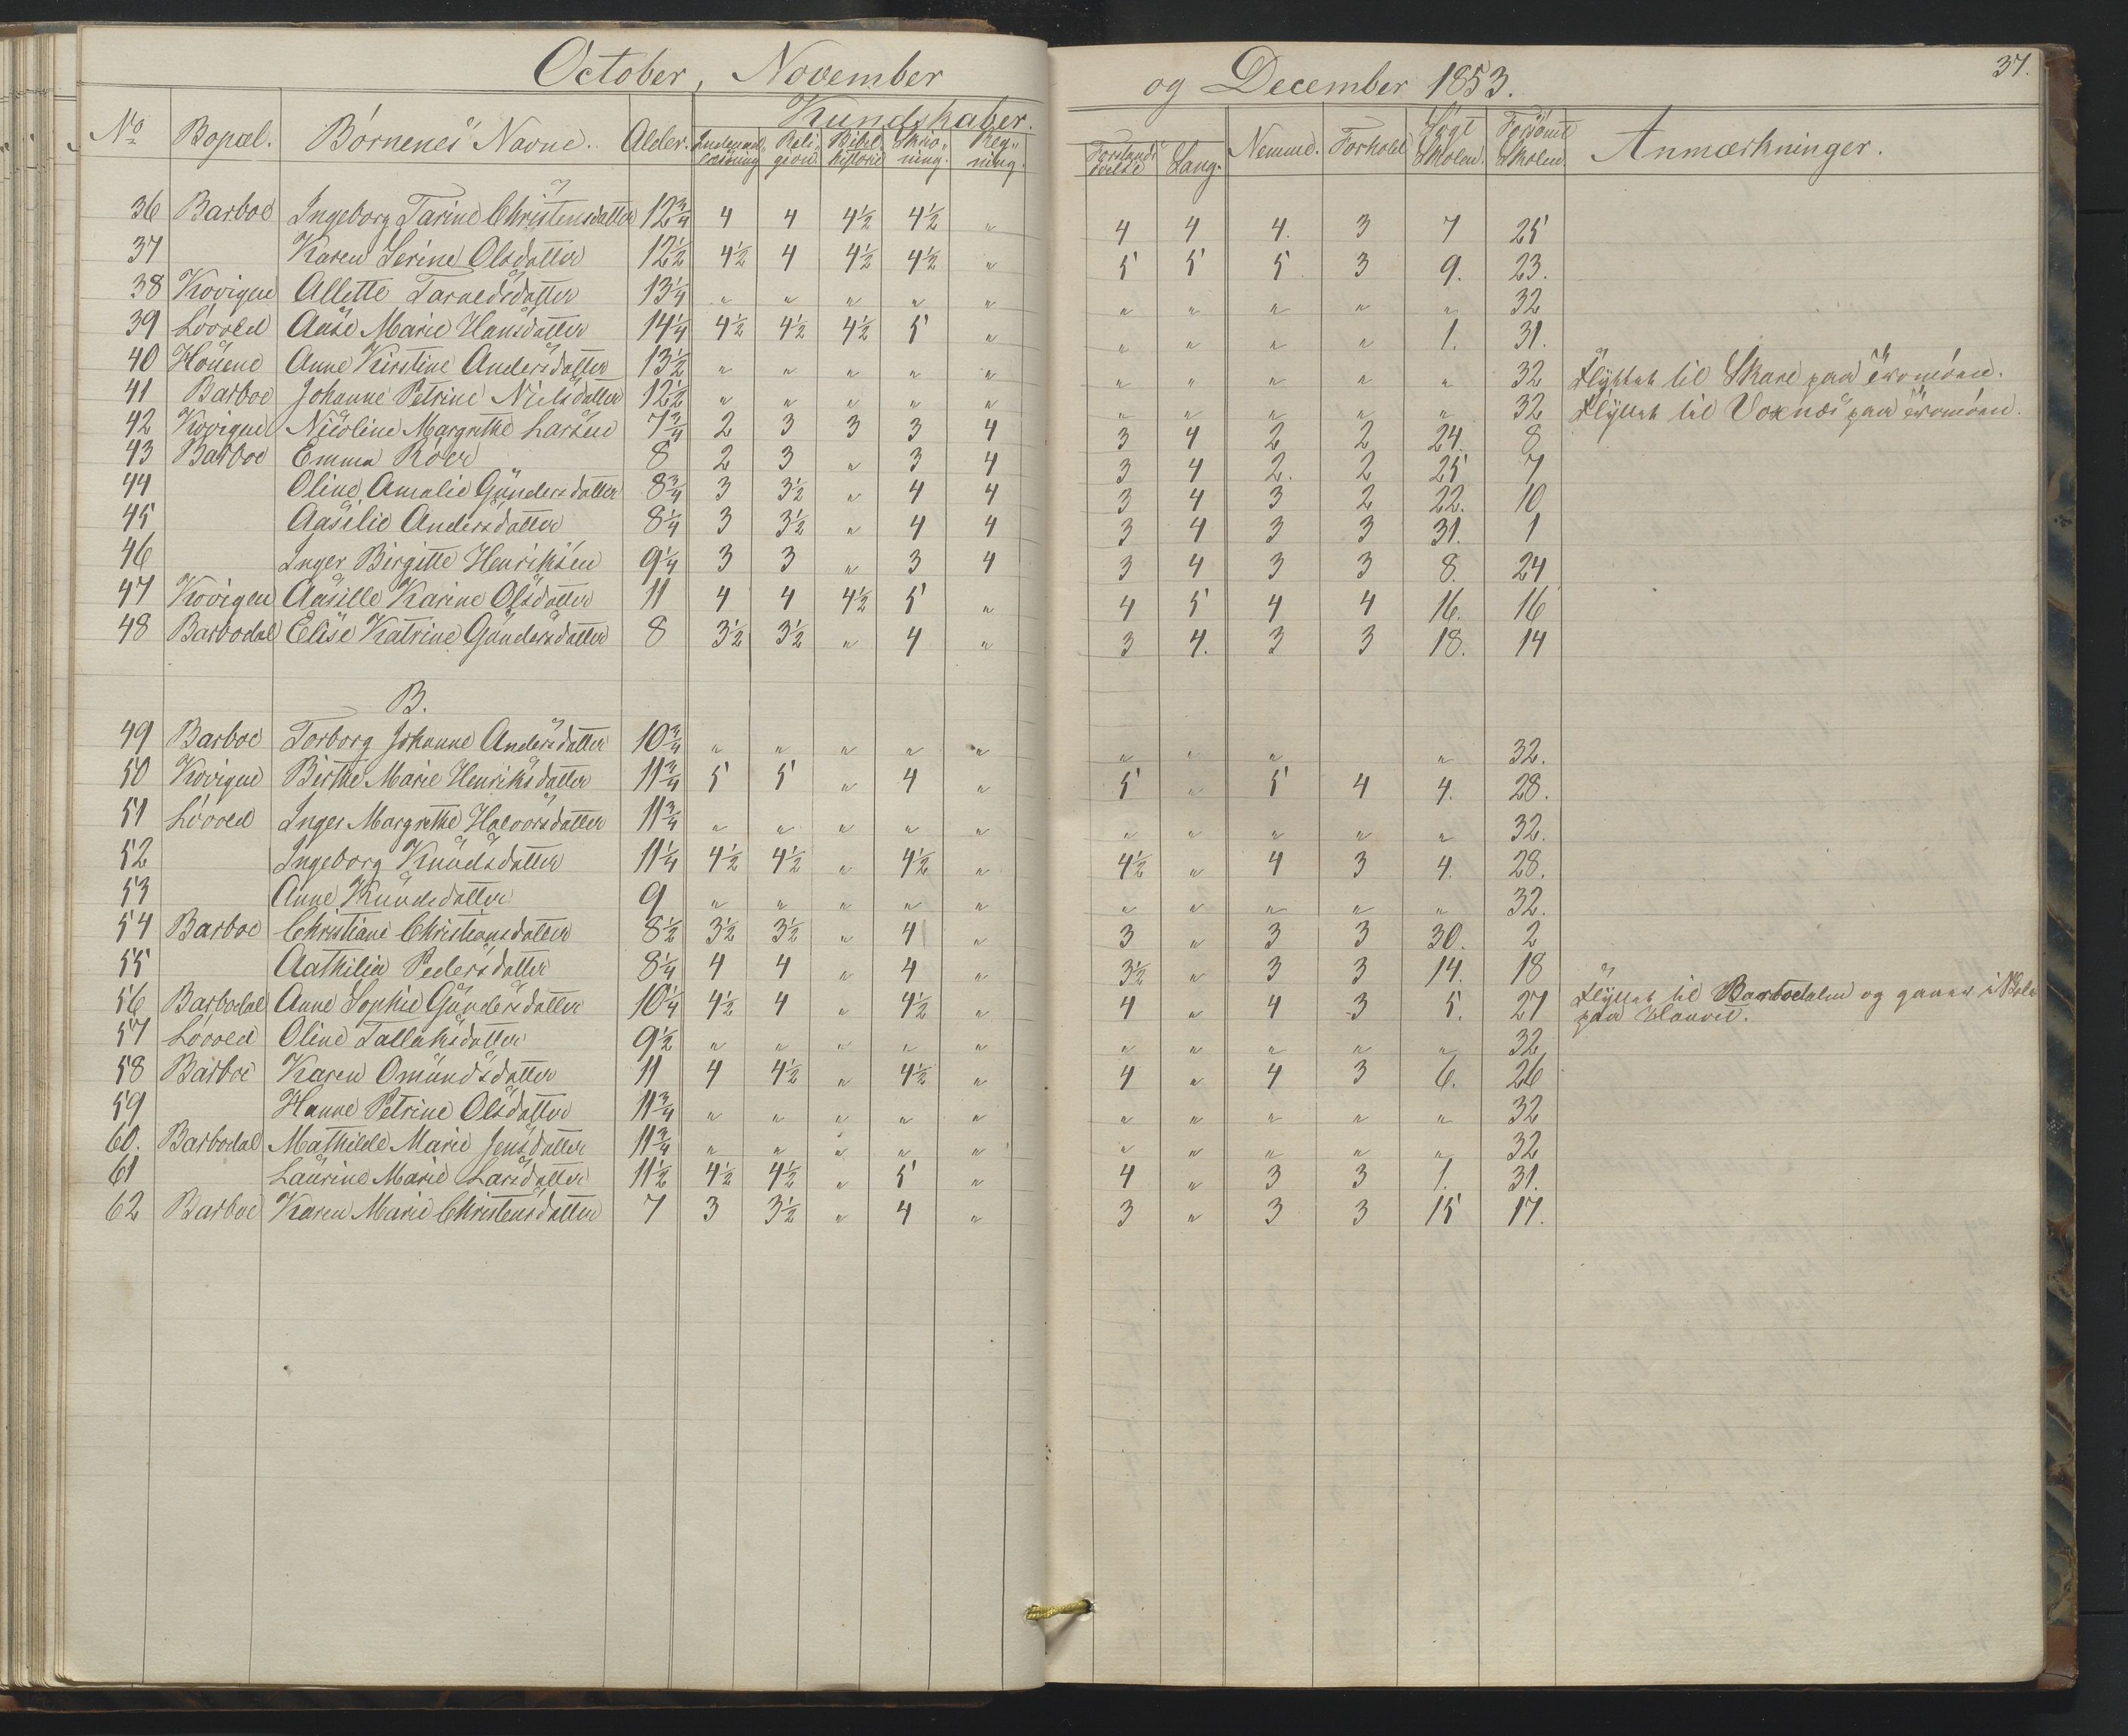 October, November og December 1853. 37.
Kundskaber.
No Bopæl. Børnenes Navne. Alder. Indenadlæsning Religion Bibelhistorie Skrivning. Regning. Forstandsøvelse Sang. Nemme. Forhold Søgt Skolen. Forsømt Skolen Anmærkninger.
36 Barboe Ingeborg Tarine Christensdatter 12 3/4 4 4 4 1/2 4 1/2 " 4 4 4. 3 7 25
37 Karen Serine Olsdatter 12 1/2 4 1/2 4 4 1/2 4 1/2 " 5 5 5 3 9. 23.
38 Kovigen Allette Tarnedsdatter 13 1/4 " " " " " " " " " " 32
39 Løvold Aase Marie Hansdatter 14 1/4 4 1/2 4 1/2 4 1/2 5 " " " " " 1. 31.
40 Houene Anne Kirstine Andersdatter 13 1/2 " " " " " " " " " " 32 Flyttet til Skare paa Tromøen.
41 Barboe Johanne Petrine Nielsdatter 12 1/2 " " " " " " " " " " 32 Flyttet til Voxnæs paa Tromøen.
42 Kovigen Nicoline Margrethe Larsen 7 3/4 2 3 3 3 4 3 4 2 2 24. 8
43 Barboe Emma Roer 8 2 3 " 3 4 3 4 2. 2 25 7
44 Oline Amalie Gundersdatter 8 3/4 3 3 1/2 " 4 4 3 4 3 2 22. 10
45 Aasilie Andersdatter 8 1/4 3 3 1/2 " 4 4 3 4 3 3 31. 1
46 Inger Birgitte Henriksen 9 1/4 3 3 " 3 4 3 4 3 3 8. 24
47 Kovigen Aasille Karine Olsdatter 11 4 4 4 1/2 5 " 4 5 4 4 16. 16
48 Barbodal Elise Katrine Gundersdatter 8 3 1/2 3 1/2 " 4 " 3 4. 3 3 18. 14
B.
49 Barboe Torborg Johanne Andersdatter 10 3/4 " " " " " " " " " 32.
50 Kovigen Birthe Marie Henriksdatter 11 3/4 5 5 " 4 " 5 " 5 4 4. 28.
51 Løvold Inger Margrethe Halvorsdatter 11 3/4 " " " " " " " " " " 32.
52 Ingeborg Knudsdatter 11 1/4 4 1/2 4 1/2 " 4 1/2 " 4 1/2 " 4 3 4. 28.
53 Anne Knudsdatter 9 " " " " " " " " " " 32.
54 Barboe Christiane Christiansdatter 8 1/2 3 1/2 3 1/2 " 4 " 3 " 3 3 30. 2
55 Aathilia Pedersdatter 8 1/4 4 4 " 4 " 3 1/2 " 3 3 14. 18
56 Barbodal Anne Sophie Gundersdatter 10 1/4 4 1/2 4 " 4 1/2 " 4 " 4 3 5. 27 Flyttet til Barbodalen og gaaer i Skole
paa
57 Løvold Oline Tallaksdatter 9 1/2 " " " " " " " " " " 32
58 Barboe Karen Omundsdatter 11 4 4 1/2 " 4 1/2 " 4 " 4 3 6. 26
59 Hanne Petrine Olsdatter 11 3/4 " " " " " " " " " " 32
60. Barbodal Mathilde Marie Jensdatter 11 3/4 " " " " " " " " " " 32
61 Laurine Marie Larsdatter 11 1/2 4 1/2 4 1/2 " 5 " 4 " 3 3 1. 31.
62 Barboe Karen Marie Christensdatter 7 3 3 1/2 " 4 " 3 " 3 3 15 17.